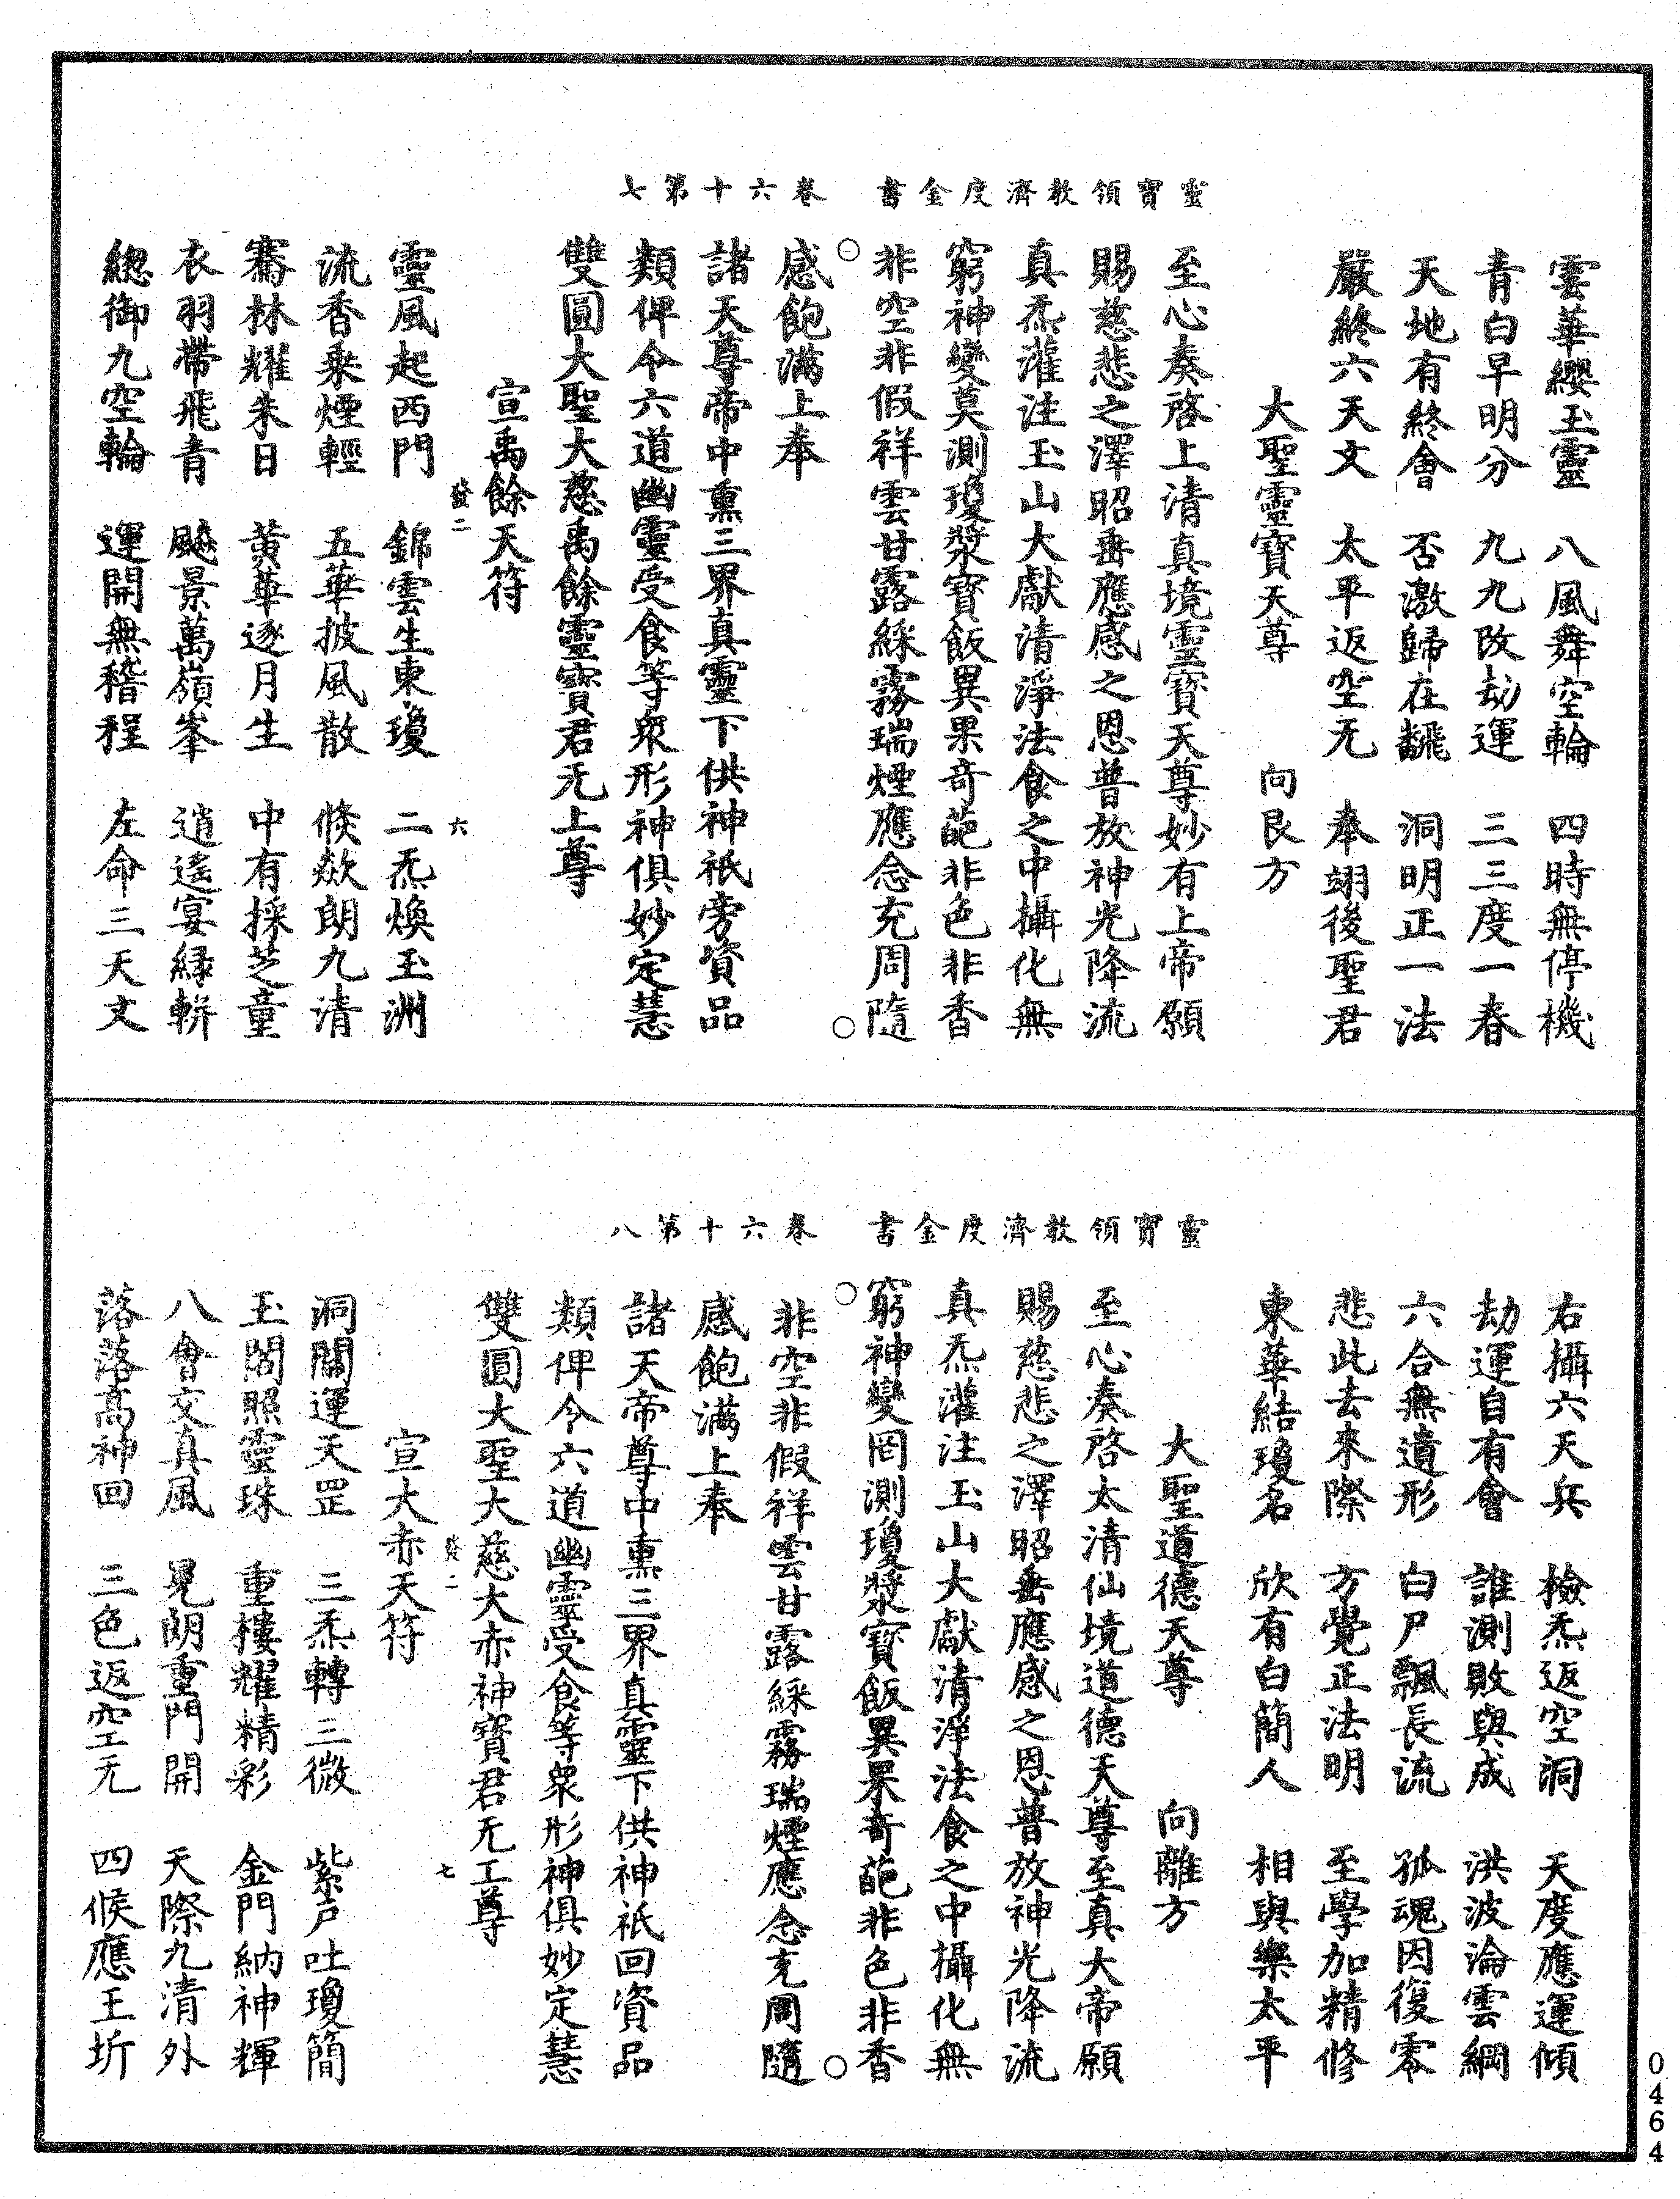 雲華纓玉靈　八風舞空輪　四時無停機
青白早明分　九九改劫運　三三度一春
天地有終會　否激歸在飜　洞明正一法
嚴終六天文　太平返空无　奉翊後聖君
大聖靈寶天尊　向艮方
至心奏啓上清真境靈寶天尊妙有上帝願
賜慈悲之澤昭垂應感之恩普放神光降流
真炁灌注玉山大獻清淨法食之中攝化無
窮神變莫測瓊漿寶飯異果奇葩非色非香
非空非假祥雲甘露綵霧瑞煙應念充周隨
靈寶領教濟度金書　卷六十第七
感飽滿上奉
諸天尊帝中熏三界真靈下供神祇旁資品
類俾令六道幽靈受食等衆形神俱妙定慧
雙圓大聖大慈禹餘靈寶君无上尊
宣禹餘天符
發二　六
靈風起西門　錦雲生東瓊　二炁煥玉洲
流香乘煙輕　五華披風散　倏歘朗九清
騫林耀朱日　黃華逐月生　中有採芝童
衣羽帶飛青　飈景萬嶺峯　逍遙宴緑軿
緫御九空輪　運開無稽程　左命三天文
右攝六天兵　檢炁返空洞　天度應運傾
劫運自有會　誰測敗與成　洪波淪雲綱
六合無遺形　白尸飄長流　孤魂因復零
悲此去來際　方覺正法明　至學加精修
東華結瓊名　欣有白簡人　相與樂太平
大聖道德天尊　向離方
至心奏啓太清仙境道德天尊至真大帝願
賜慈悲之澤昭垂應感之恩普放神光降流
真炁灌注玉山大獻清淨法食之中攝化無
窮神變罔測瓊漿寶飯異果奇葩非色非香
靈寶領教濟度金書　卷六十第八
非空非假祥雲甘露綵霧瑞煙應念充周隨
感飽滿上奉
諸天帝尊中熏三界真靈下供神祇回資品
類俾令六道幽靈受食等衆形神俱妙定慧
雙圓大聖大慈大赤神寶君无上尊
發二　七
宣大赤天符
洞闢運天罡　三炁轉三微　紫戸吐瓊簡
玉閤照靈珠　重樓耀精彩　金門納神輝
八會交真風　晃朗重門開　天際九清外
落落高神回　三色返空无　四候應王圻
0464